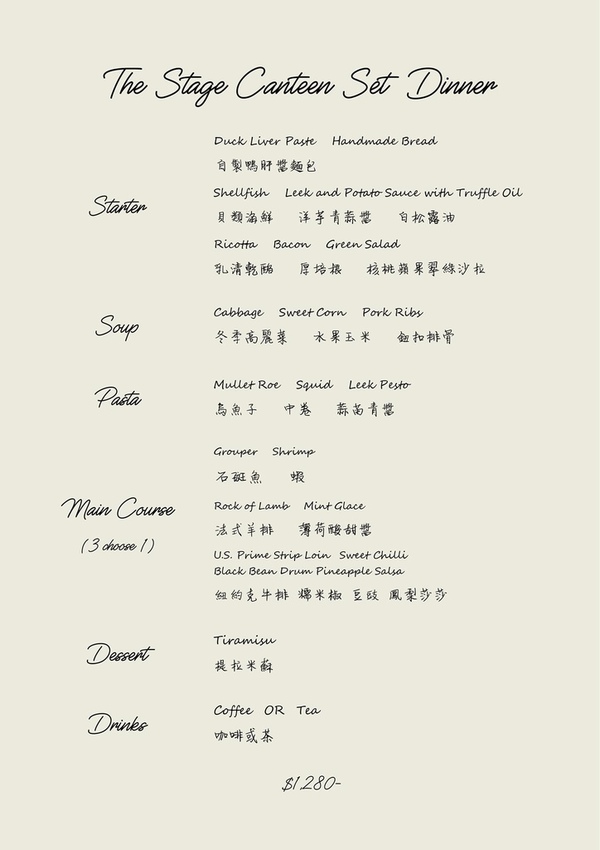 The Stage Canteen Set Dinner
Duck Liver Paste Handmade Bread
自製鴨肝醬麵包
Starter
Shellfish Leek and Potato Sauce with Truffle Oil
貝類海鮮 洋芋青蒜醬 白松露油
Ricotta Bacon Green Salad
乳清乾酪 厚培根 核桃蘋果翠綠沙拉
Soup
Cabbage Sweet Corn Pork Ribs
冬季高麗菜 水果玉米 鈕扣排骨
Pasta
Mullet Roe Squid Leek Pesto
烏魚子 中卷 蒜苗青醬
Grouper Shrimp
石斑魚 蝦
Main Course
(3 choose 1)
Rock of Lamb Mint Glace
法式羊排 薄荷酸甜醬
U.S. Prime Strip Loin Sweet Chilli
Black Bean Drum Pineapple Salsa
紐約克牛排 糯米椒 豆豉 鳳梨莎莎
Dessert
Tiramisu
提拉米蘇
Drinks
Coffee OR Tea
咖啡或茶
$1,280-